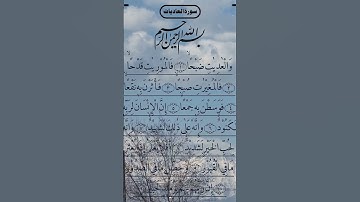 سورة العاديات
بسم الله الرحمن الرحيم
وَالْعَٰدِيَٰتِ ضَبْحًا ۝١ فَالْمُورِيَٰتِ قَدْحًا
۝٢ فَالْمُغِيرَٰتِ صُبْحًا ۝٣ فَأَثَرْنَ بِهِ نَقْعًا
۝٤ فَوَسَطْنَ بِهِ جَمْعًا ۝٥ إِنَّ الْإِنسَٰنَ لِرَبِّهِ
لَكَنُودٌ ۝٦ وَإِنَّهُ عَلَىٰ ذَٰلِكَ لَشَهِيدٌ ۝٧ وَإِنَّهُ
لِحُبِّ الْخَيْرِ لَشَدِيدٌ ۝٨ أَفَلَا يَعْلَمُ إِذَا بُعْثِرَ
مَا فِي الْقُبُورِ ۝٩ وَحُصِّلَ مَا فِي الصُّدُورِ